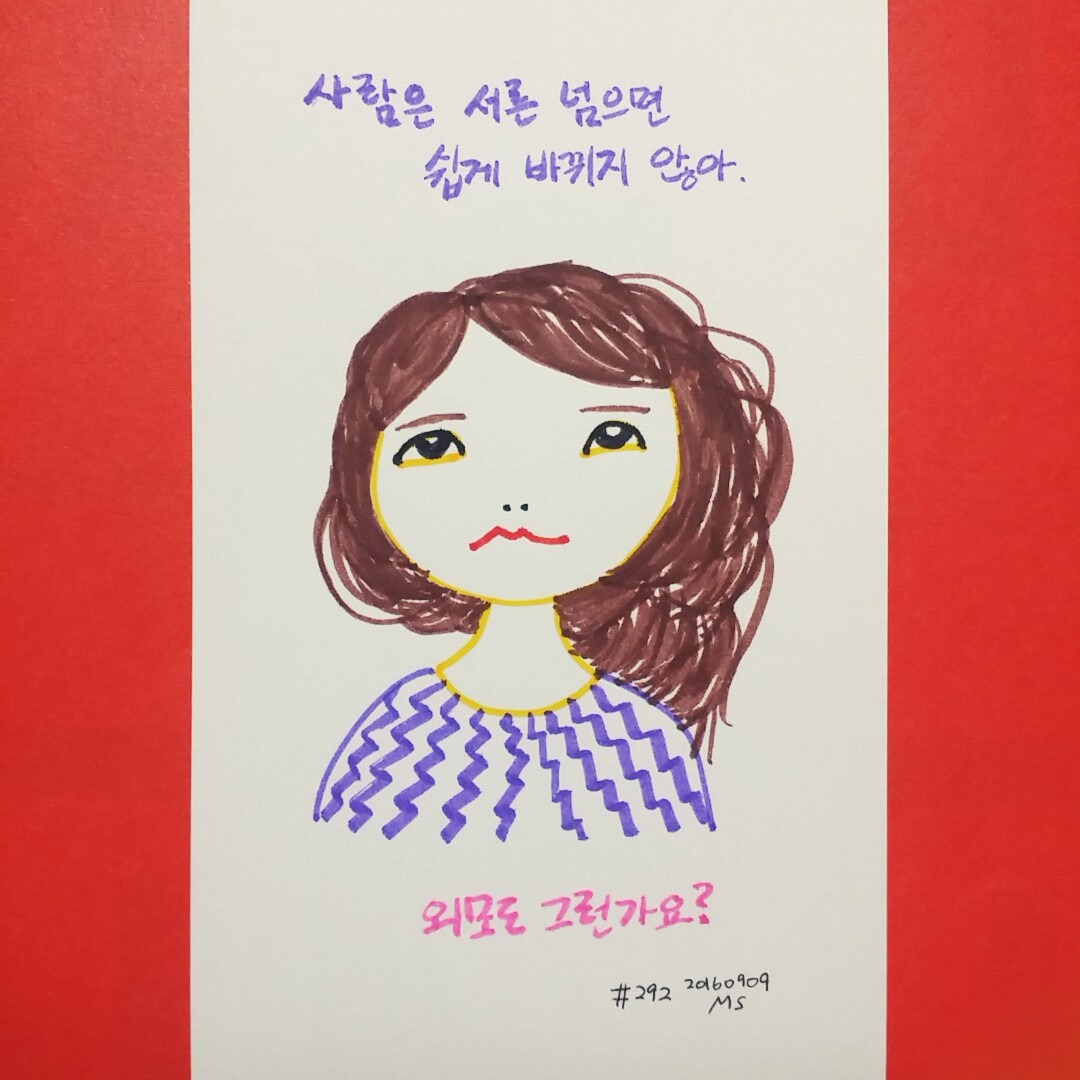 사람은 서른 넘으면
쉽게 바뀌지 않아.
외모도 그런가요?
#292 20160909
MS